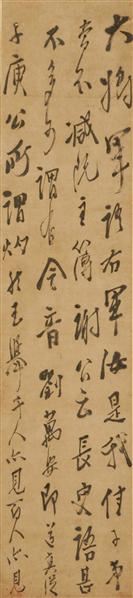 大將軍語右軍汝是我佳子弟
當不減阮主簿謝公云長史語甚
不多可謂有令音劉萬安即道真從
子庾公所謂灼然玉舉千人亦見百人亦見